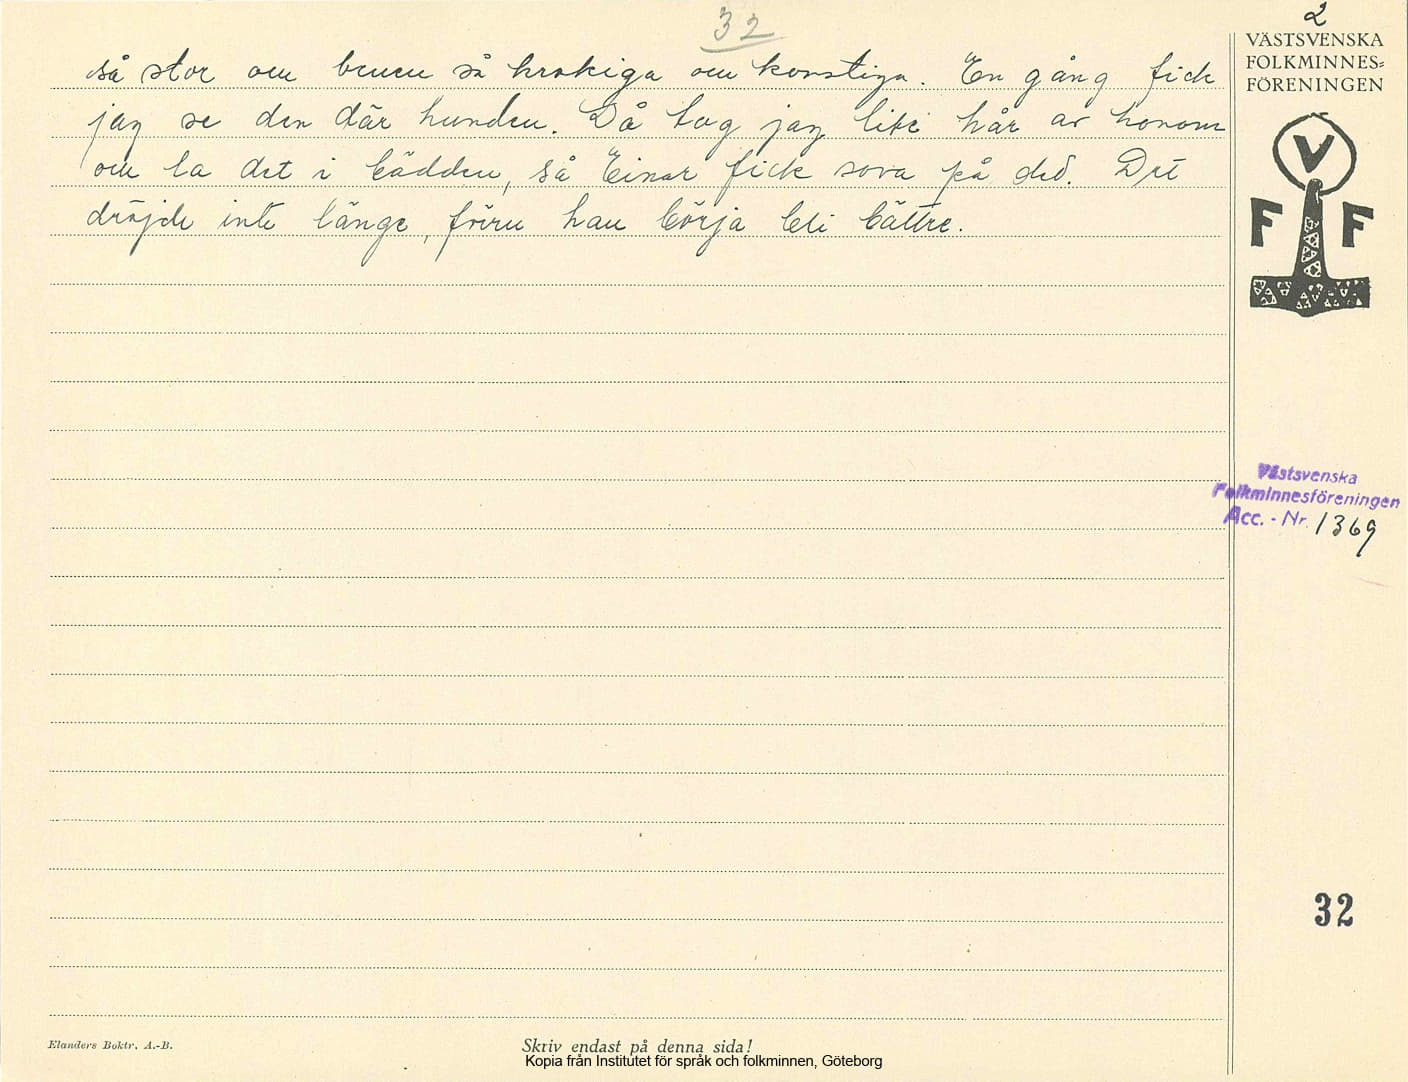 32
2
så stor ou benen så krokiga ou konstiga. En gång fick
jag se den där hunden. Då tog jag lite hår av honom
ou la det i bädden, så Einar fick sova på det. Det
dröjde inte länge, förrn han börja bli bättre.
VÄSTSVENSKA
FOLKMINNES=
FÖRENINGEN
V
F F
Västsvenska
Folkminnesföreningen
Acc. - Nr. 1369
32
Elanders Boktr. A.-B.
Skriv endast på denna sida!
Kopia från Institutet för språk och folkminnen, Göteborg